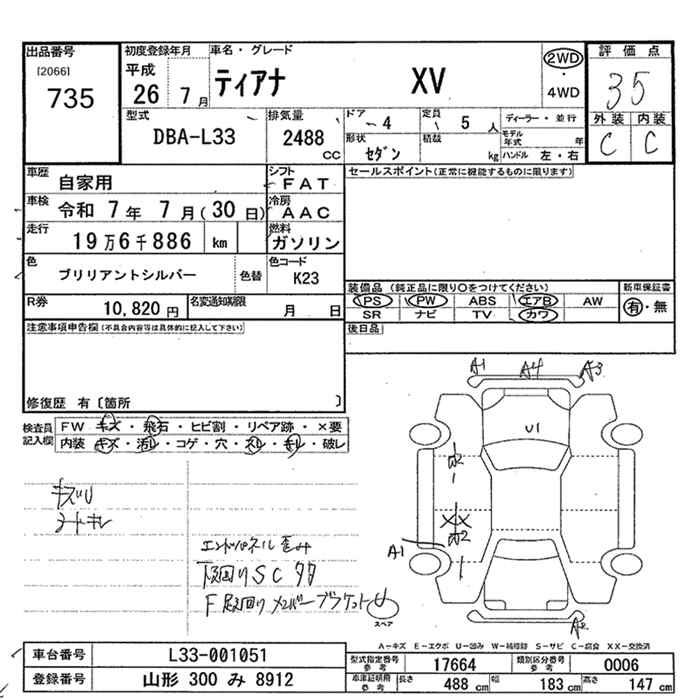 出品番号 初度登録年月 車名・グレード 評価点
[2066]
735
平成
26 7月
ティアナ XV
2WD
・
4WD
35
型式 排気量 ドア 定員 ディーラー・並行
DBA-L33 2488 CC
4 5 人
形状 積載 モデル年式 年
セダン kg ハンドル 左・右
外装 内装
C C
車歴 自家用 シフト FAT
セールスポイント(正常に機能するものに限ります)
車検 令和 7年 7月(30日) 冷房 AAC
走行 19万6千886 km 燃料 ガソリン
色 ブリリアントシルバー 色替 色コード K23
装備品 (純正品に限り○をつけてください) 新車保証書
PS PW ABS エアB AW 有・無
SR ナビ TV カワ
R券 10,820円 名変通知期限 月 日
後日品
注意事項申告欄(不具合内容等は具体的に記入して下さい)
修復歴 有〔箇所 〕
検査員記入欄 FW キズ・飛石・ヒビ割・リペア跡・×要
内装 キズ・汚レ・コゲ・穴・スレ・キレ・破レ
A1 A4 A3
U1
2
1
XX
2
A1
1
A2
キズU
シートキレ
エンドパネル歪み
下廻りSC
F下廻りメンバーブラケットU
スペア
A−キズ E−エクボ U−凹み W−補修跡 S−サビ C−腐食 XX−交換済
車台番号 L33-001051
型式指定番号参考 17664 類別区分番号参考 0006
登録番号 山形 300 み 8912
車庫証明用参考 長さ 488 cm 幅 183 cm 高さ 147 cm